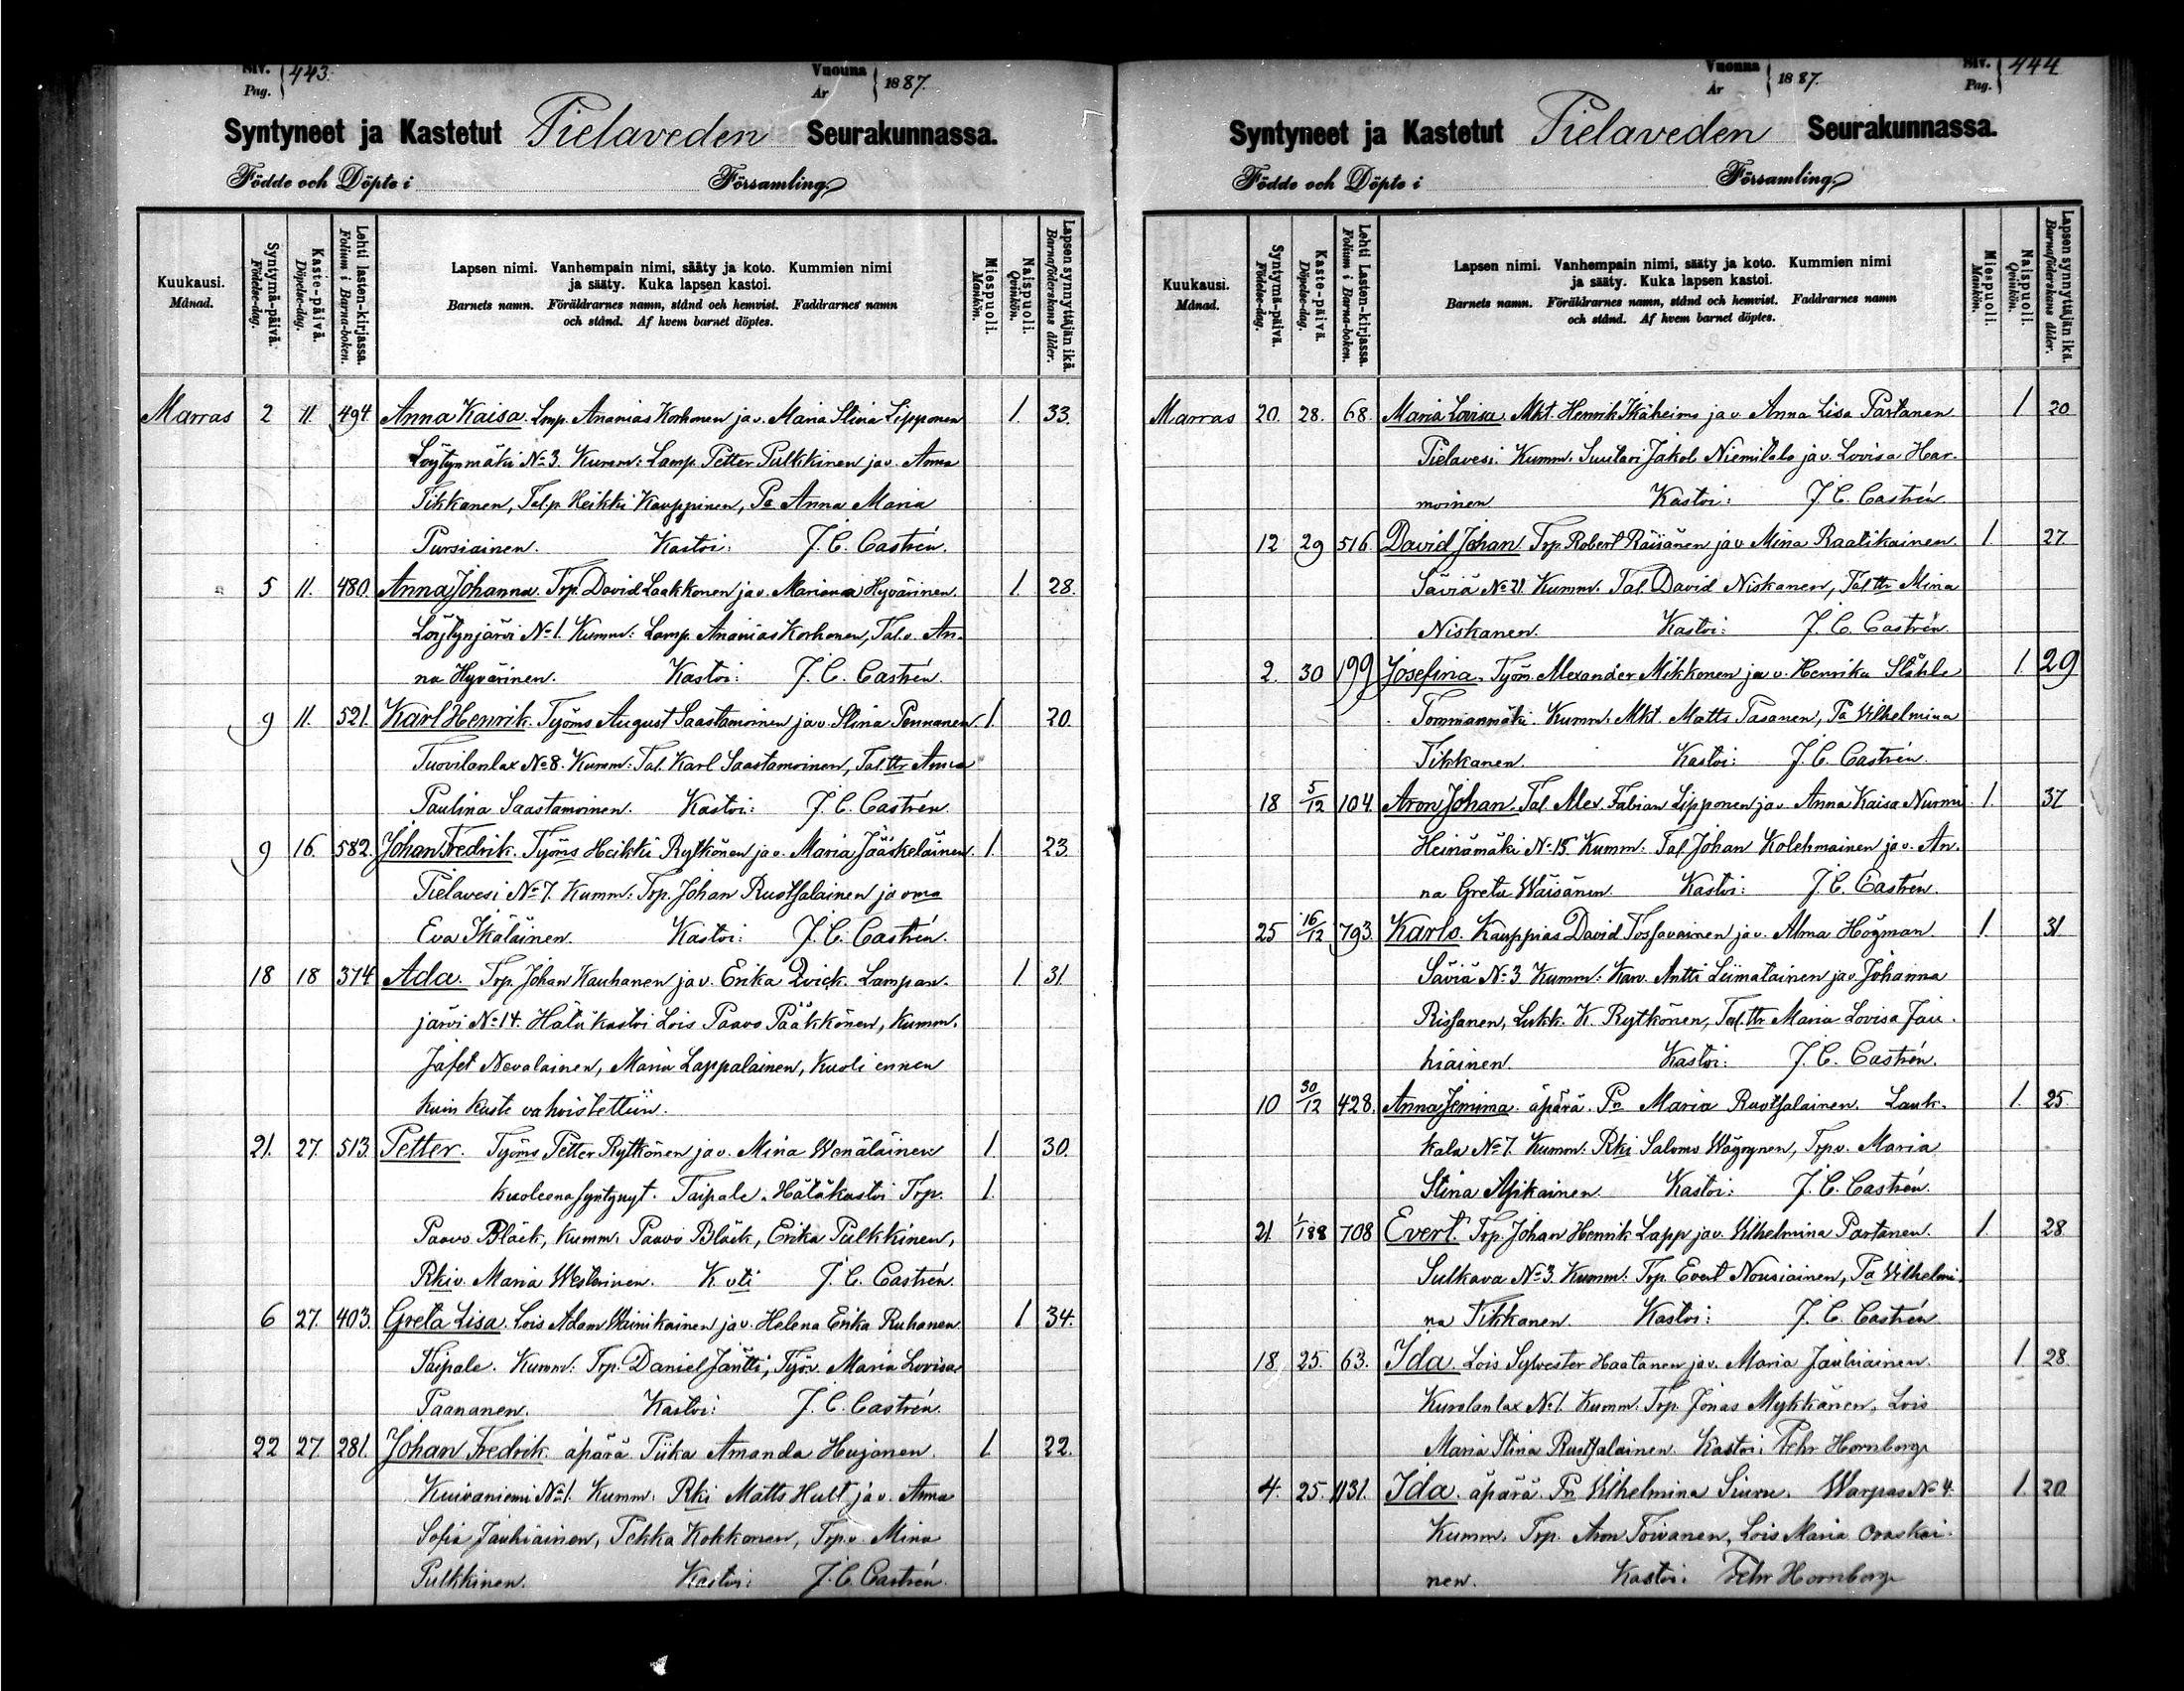 Siv. Pag. 443. Vuonna År 1887.
Syntyneet ja Kastetut Pielaveden Seurakunnassa.
Födde och Döpte i Församling.
Kuukausi. Månad.
Syntymä-päivä. Födelse-dag.
Kaste-päivä. Döpelse-dag.
Lehti lasten-kirjassa. Folium i Barna-boken.
Lapsen nimi. Vanhempain nimi, sääty ja koto. Kummien nimi
ja sääty. Kuka lapsen kastoi.
Barnets namn. Föräldrarnes namn, stånd och hemvist. Faddrarnes namn
och stånd. Af hvem barnet döptes.
Miespuoli. Mankön.
Naispuoli. Qvinkön.
Lapsen synnyttäjän ikä. Barnaföderskans ålder.
Marras 2 11. 494. Anna Kaisa. Lmp. Ananias Korhonen ja v. Maria Stina Lipponen 1. 33.
Löytynmäki No 3. Kumm: Lamp. Petter Pulkkinen ja v. Anna
Tikkanen, Tal.p. Heikki Kauppinen, Pa Anna Maria
Pursiainen. Kastoi: J. C. Castrén.
5 11. 480. Anna Johanna. Trp. David Laakkonen ja v. Marianna Hyvärinen. 1. 28.
Löytynjärvi No 1. Kumm: Lamp. Ananias Korhonen, Tal.v. An-
na Hyvärinen. Kastoi: J. C. Castrén.
9 11. 521. Karl Henrik. Työms August Saastamoinen ja v. Stina Pennanen. 1. 20.
Tuovilanlax No 8. Kumm: Tal. Karl Saastamoinen, Tal.ttr Anna
Paulina Saastamoinen. Kastoi: J. C. Castrén.
9 16. 582. Johan Fredrik. Työms Heikki Rytkönen ja v. Maria Jääskeläinen. 1. 23.
Pielavesi No 7. Kumm: Trp. Johan Ruotsalainen ja oma
Eva Ikäläinen. Kastoi: J. C. Castrén.
18 18 374 Ada. Trp. Johan Kauhanen ja v. Erika Qvick. Lampan- 1 31.
järvi No 14. Hätäkastoi Lois Paavo Pääkkönen, Kumm.
Jafet Nevalainen, Maria Lappalainen, Kuoli ennen
kuin kaste vahvistettiin.
21. 27. 513. Petter. Työms Petter Rytkönen ja v. Mina Wenäläinen 1. 30.
kuoleena syntynyt. Taipale. Hätäkastoi Trp. 1.
Paavo Bläck, Kumm: Paavo Bläck, Erika Pulkkinen,
Rkiv. Maria Westerinen. K oti J. C. Castrén.
6 27. 403. Greta Lisa. Lois Adam Wainikainen ja v. Helena Erika Ruhanen. 1 34.
Taipale. Kumm: Trp. Daniel Jäntti, Työv. Maria Lovisa
Paananen. Kastoi: J. C. Castrén.
22 27. 281. Johan Fredrik. äpärä. Piika Amanda Hujanen. 1. 22.
Kuivaniemi No 1. Kumm: Rki Matts Hult ja v. Anna
Sofia Jauhiainen, Pekka Kokkonen, Trp.v. Mina
Pulkkinen. Kastoi: J. C. Castrén.
Siv. Pag. 444 Vuonna År 1887.
Syntyneet ja Kastetut Pielaveden Seurakunnassa.
Födde och Döpte i Församling.
Kuukausi. Månad.
Syntymä-päivä. Födelse-dag.
Kaste-päivä. Döpelse-dag.
Lehti Lasten-kirjassa. Folium i Barna-boken.
Lapsen nimi. Vanhempain nimi, sääty ja koto. Kummien nimi
ja sääty. Kuka lapsen kastoi.
Barnets namn. Föräldrarnes namn, stånd och hemvist. Faddrarnes namn
och stånd. Af hvem barnet döptes.
Miespuoli. Mankön.
Naispuoli. Qvinkön.
Lapsen synnyttäjän ikä. Barnaföderskans ålder.
Marras 20. 28. 68. Maria Lovisa. Mkt. Henrik Ikäheimo ja v. Anna Lisa Partanen 1 20.
Pielavesi. Kumm. Suutari Jakob Niemitalo ja v. Lovisa Har-
moinen Kastoi: J. C. Castrén.
12 29 516. David Johan. Trp. Robert Räisänen ja v. Mina Raatikainen. 1. 27.
Säviä No 21. Kumm: Tal. David Niskanen, Tal.ttr Mina
Niskanen. Kastoi: J. C. Castrén.
2. 30 199 Josefina. Työm. Alexander Mikkonen ja v. Henrika Ståhle 1. 29
Tommanmäki. Kumm: Mkt. Matts Tasanen, Pa Vilhelmina
Tikkanen. Kastoi: J. C. Castrén.
18 5/12 104. Aron Johan. Tal. Alex. Fabian Lipponen ja v. Anna Kaisa Nurmi 1. 37
Heinämäki No 15. Kumm: Tal. Johan Kolehmainen ja v. An-
na Greta Wäisänen. Kastoi: J. C. Castrén.
25 16/12 793. Karlo. Kauppias David Tossavainen ja v. Alma Högman. 1 31.
Säviä No 3. Kumm: Karv. Antti Liimatainen ja v. Johanna
Rissanen, Lukk. K. Rytkönen, Tal.ttr Maria Lovisa Jau-
hiainen. Kastoi: J. C. Castrén.
10 30/12 428. Anna Jemima. äpärä. Pn Maria Ruotsalainen. Lauk- 1. 25.
kala No 7. Kumm: Rki Salomo Wäyrynen, Trp.v. Maria
Stina Asikainen. Kastoi: J. C. Castrén.
21. 1/188 708 Evert. Trp. Johan Henrik Lapp ja v. Vilhelmina Partanen. 1. 28
Sulkava No 3. Kumm: Trp. Evert Nousiainen, Pa Vilhelmi-
na Tikkanen. Kastoi: J. C. Castrén
18 25. 63. Ida. Lois Sylvester Haatanen ja v. Maria Jauhiainen. 1 28.
Kurolanlax No 1. Kumm. Trp. Jonas Mykkänen, Lois
Maria Stina Ruotsalainen. Kastoi: Fehr Hornborg
4. 25. 1131. Ida. äpärä. Pn Vilhelmina Siuru. Warpas No 4. 1. 20.
Kumm. Trp. Aron Toivanen, Lois Maria Oraskai-
nen. Kastoi: Fehr Hornborg